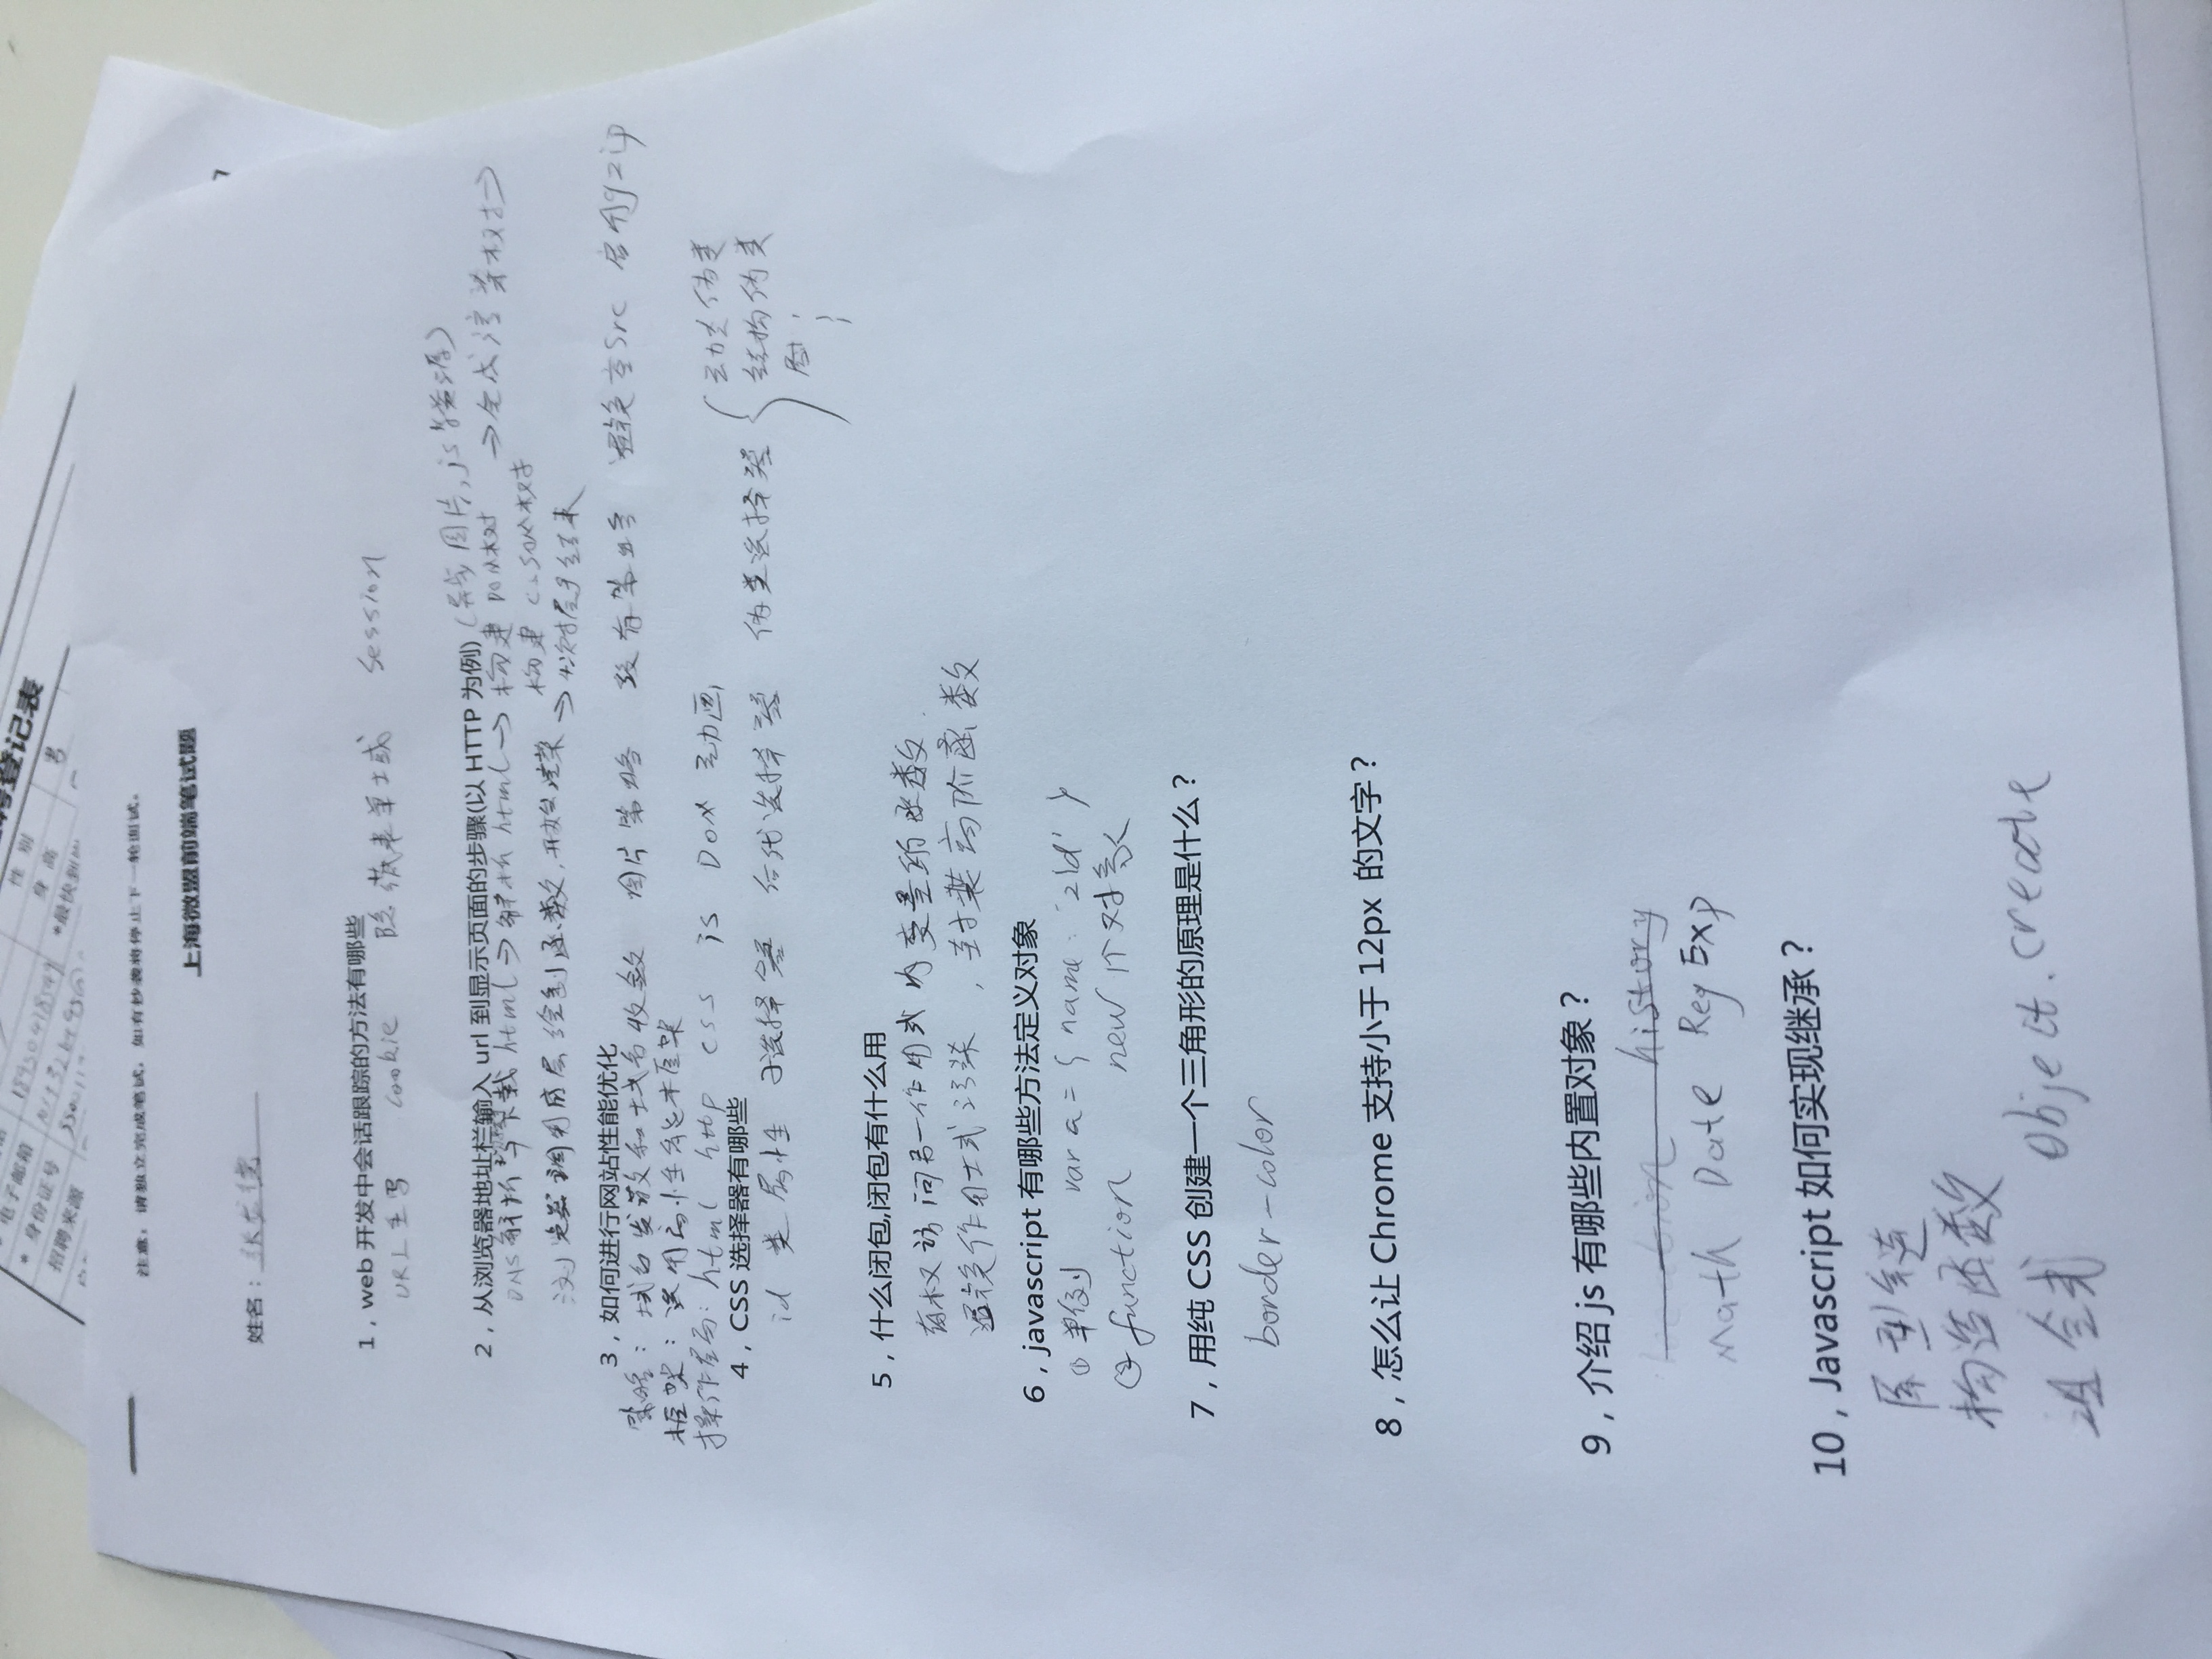 聘登记表
电子邮箱 18950418549 性 别 男
* 身份证号 身 高
招聘来源 *最快到岗
注意：请独立完成笔试，如有抄袭将停止下一轮面试。
上海微盟前端笔试题
姓名：
1，web 开发中会话跟踪的方法有哪些
URL重写 cookie 隐藏表单域 session
2，从浏览器地址栏输入 url 到显示页面的步骤(以 HTTP 为例) (异步图片,js等资源)
DNS解析 下载html→解析html→构建DOM树 →生成渲染树→
构建CSSOM树
浏览器调用底层绘制函数,开始渲染→
3，如何进行网站性能优化
策略：域名发散和域名收敛 图片策略 缓存策略 避免空src 启用gzip
框架：选用高性能框架
操作层面：html http css js DOM 动画
4，CSS 选择器有哪些
id 类 属性 子选择器 后代选择器 伪类选择器
动态伪类
结构伪类
5，什么闭包,闭包有什么用
有权访问另一作用域内变量的函数
避免作用域污染，封装高阶函数
6，javascript 有哪些方法定义对象
① 单例 var a = { name: 'zld' }
② function new 个对象
7，用纯 CSS 创建一个三角形的原理是什么？
border-color
8，怎么让 Chrome 支持小于 12px 的文字？
9，介绍 js 有哪些内置对象？
location history
Math Date RegExp
10，Javascript 如何实现继承？
原型链
构造函数
组合式 Object.create